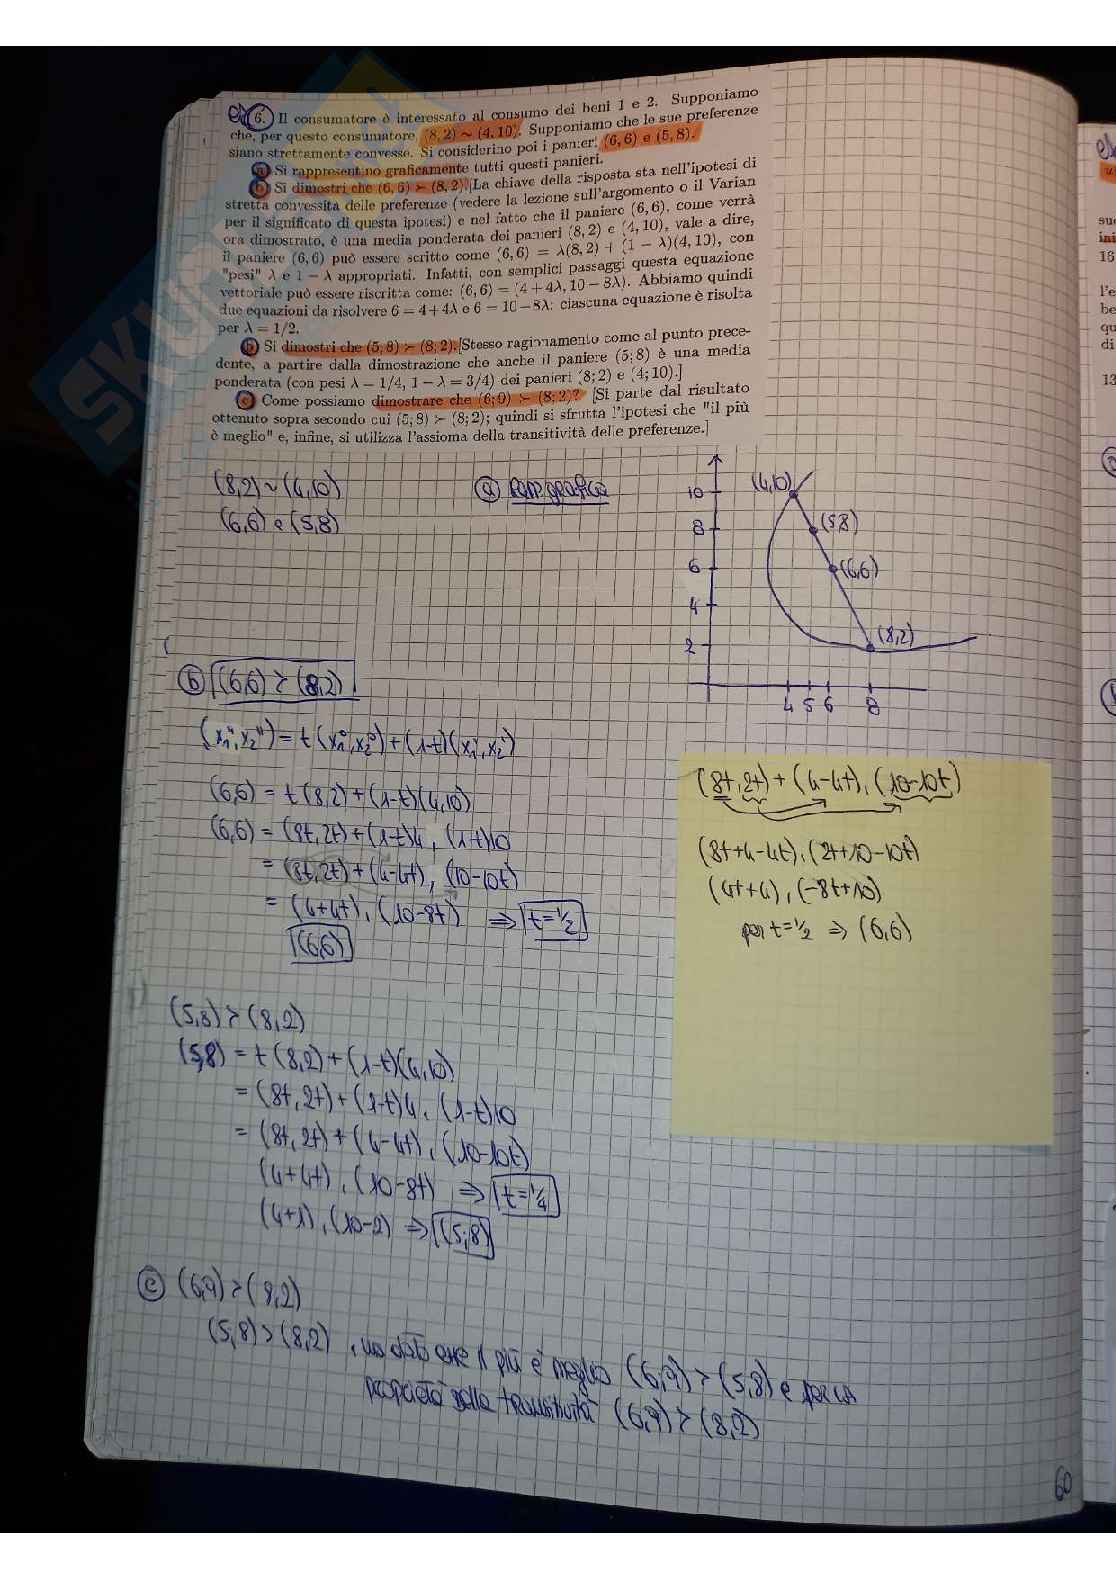 es 6. Il consumatore è interessato al consumo dei beni 1 e 2. Supponiamo
che, per questo consumatore, (8, 2) ∼ (4, 10). Supponiamo che le sue preferenze
siano strettamente convesse. Si considerino poi i panieri (6, 6) e (5, 8).
a) Si rappresentino graficamente tutti questi panieri.
b) Si dimostri che (6, 6) ≻ (8, 2).[La chiave della risposta sta nell'ipotesi di
stretta convessità delle preferenze (vedere la lezione sull'argomento o il Varian
per il significato di questa ipotesi) e nel fatto che il paniere (6, 6), come verrà
ora dimostrato, è una media ponderata dei panieri (8, 2) e (4, 10), vale a dire,
il paniere (6, 6) può essere scritto come (6, 6) = λ(8, 2) + (1 − λ)(4, 10), con
"pesi" λ e 1 − λ appropriati. Infatti, con semplici passaggi questa equazione
vettoriale può essere riscritta come: (6, 6) = (4 + 4λ, 10 − 8λ). Abbiamo quindi
due equazioni da risolvere 6 = 4 + 4λ e 6 = 10 − 8λ: ciascuna equazione è risolta
per λ = 1/2.
b) Si dimostri che (5; 8) ≻ (8; 2).[Stesso ragionamento come al punto prece-
dente, a partire dalla dimostrazione che anche il paniere (5; 8) è una media
ponderata (con pesi λ = 1/4, 1 − λ = 3/4) dei panieri (8; 2) e (4; 10).]
c) Come possiamo dimostrare che (6; 9) ≻ (8; 2)? [Si parte dal risultato
ottenuto sopra secondo cui (5; 8) ≻ (8; 2); quindi si sfrutta l'ipotesi che "il più
è meglio" e, infine, si utilizza l'assioma della transitività delle preferenze.]
(8,2) ~ (4,10)
(6,6) e (5,8)
a
10
8
6
4
2
(4,10)
(5,8)
(6,6)
(8,2)
4 5 6 8
b (6,6) ≻ (8,2)
(6,6) = t(8,2) + (1-t)(4,10)
(6,6) = (8t, 2t) + (1-t)4, (1-t)10
= (8t, 2t) + (4-4t), (10-10t)
= (4+4t), (10-8t) ⇒ t=1/2
(6,6)
(8t, 2t) + (4-4t), (10-10t)
(8t+4-4t), (2t+10-10t)
(4t+4), (-8t+10)
per t=1/2 ⇒ (6,6)
(5,8) ≻ (8,2)
(5,8) = t(8,2) + (1-t)(4,10)
= (8t, 2t) + (1-t)4, (1-t)10
= (8t, 2t) + (4-4t), (10-10t)
(4+4t), (10-8t) ⇒ t=1/4
(4+1), (10-2) ⇒ (5;8)
c (6,9) ≻ (8,2)
(5,8) ≻ (8,2), ma dato che il più è meglio (6,9) ≻ (5,8) e per la
proprietà della transitività (6,9) ≻ (8,2)
60
16
13